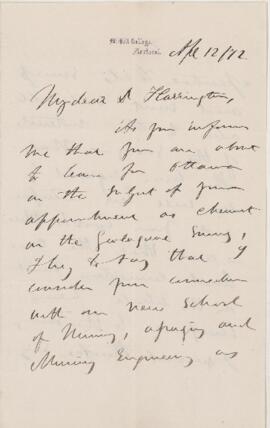 McGill College,
Montreal.
Apl 12/72
My dear Dr Harrington,
As you inform
me that you are about
to leave for Ottawa
on the subject of your
appointment as chemist
on the Geological Survey,
I beg to say that I
consider your connection
with our new School
of Mining, assaying and
Mining Engineering as